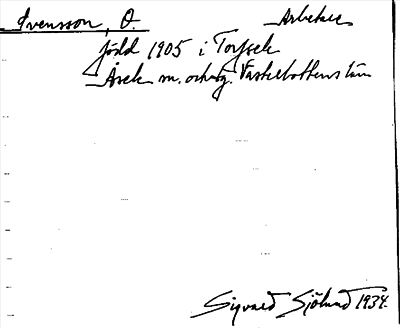 Svensson, O. Arbetare
född 1905 i Torfsele
Åsele m. och sg. Västerbottens län
Sigvard Sjölund 1934.